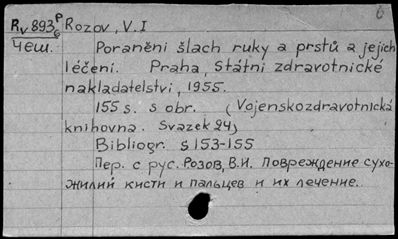 6
Rv 893 P/6 Rozov, V.I
Чеш.
Poranění šlach ruky a prstů a jejich
léčení. Praha, Státní zdravotnické
nakladatelství, 1955.
155 s. s obr. (Vojenskozdravotnická
knihovna. Svazek 24)
Bibliogr. s 153-155
Пер. с рус. Розов, В.И. Повреждение сухо-
жилий кисти и пальцев и их лечение.